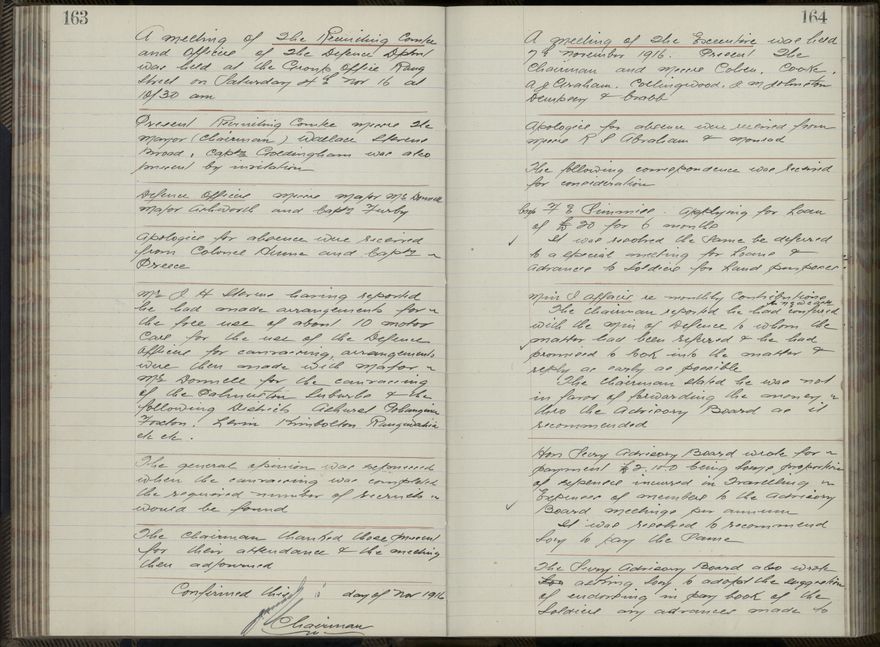 163
A meeting of The Recruiting Comtee
and Officers of The Defence Dptmt
was held at the Group Office Rang
Street on Saturday 4th Nov 16 at
10/30 am
Present Recruiting Comtee Messrs The
Mayor (Chairman) Wallace Stevens
Broad, Captn Coldingham was also
present by invitation
Defence Officers Messrs Major McDonnell
Major Ashworth and Captn Furby
Apologies for absence were received
from Colonel and Captn
Preece
Mr J H Stevens having reported
he had made arrangements for
the free use of about 10 motor
Cars for the use of the Defence
Officers for canvassing, arrangements
were then made with Major
McDonnell for the canvassing
of the Palmerston Suburbs & the
following Districts Ashurst Pohangina
Foxton, Levin Kimbolton Rangiwahia
etc etc.
The general opinion was expressed
when the canvassing was completed
the required number of recruits
would be found
The Chairman thanked those present
for their attendance & the meeting
then adjourned
Confirmed this day of Nov 1916
Chairman
164
A meeting of the Executive was held
7th November 1916. Present The
Chairman and Messrs Cohen, Cooke,
A J Graham, Collingwood, J M Johnston
Dempsey & Crabb
Apologies for absence were received from
Messrs R S Abraham &
The following correspondence was received
for consideration
F E Pimmise. Applying for Loan
of £20 for 6 months
It was resolved the same be deferred
to a special meeting for Loans &
advances to Soldiers for Land purposes
Min I Affairs re monthly Contributions
The Chairman reported he had conferred
with the Min of Defence to whom the
matter had been referred & he had
promised to look into the matter &
reply as early as possible
The Chairman stated he was not
in favor of forwarding the money
thro the Advisory Board as it
recommended
Hon Secry Advisory Board wrote for
payment £2.10.0 being Socys proportion
of expenses incurred in Travelling
Expenses of members to the Advisory
Board meetings per annum
It was resolved to recommend
Socy to pay the same
The Secry Advisory Board also wrote
asking Socy to adopt the suggestion
of endorsing in pay book of the
Soldiers any advances made to